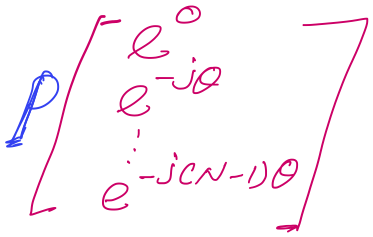 ρ [ e^0
e^{-jθ}
⋮
e^{-j(N-1)θ} ]